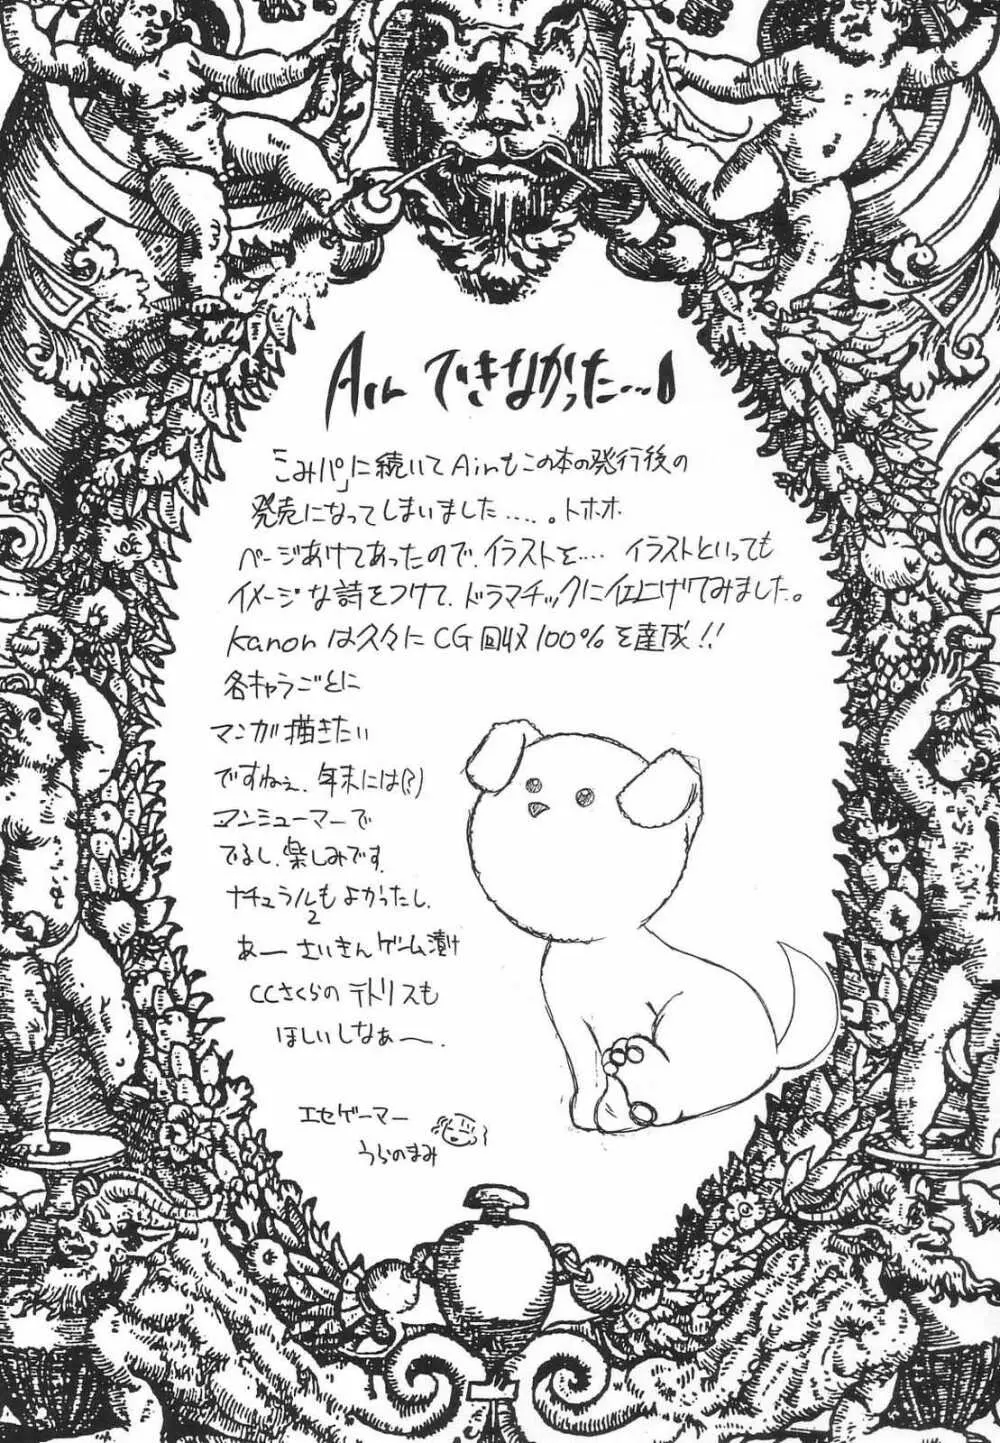 Air できなかった…
「こみパ」に続いてAirもこの本の発行後の
発売になってしまいました……。トホホ
ページあけてあったので、イラストを…. イラストといっても
イメージな詩をつけて、ドラマチックに仕上げてみました。
Kanonは久々にCG回収100%を達成!!
各キャラごとに
マンガ描きたい
ですねぇ、年末には(?)
マンミューマーで
でるし、楽しみです。
ナチュラル2もよかったし、
あー さいきんゲーム漬け
CCさくらのテトリスも
ほしいしなぁ〜。
エセゲーマー
うらのまみ